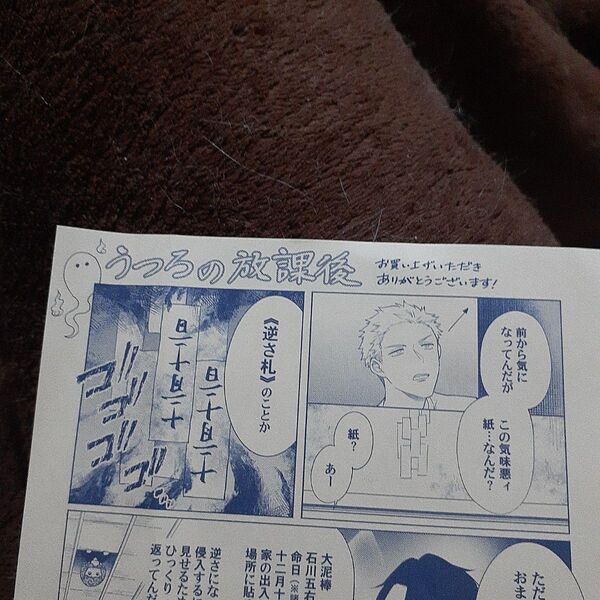 うつろの放課後
お買い上げいただき
ありがとうございます!
前から気に
なってんだが
この気味悪ィ
紙…なんだ?
紙?
あー
《逆さ札》のことか
十二月十二日
十二月十二日
ゴゴゴゴ
ただ
おま
大泥棒
石川五右
命日(※諸
十二月十
家の出入
場所に貼
逆さにな
侵入する
見せるた
ひっくり
返ってんだ